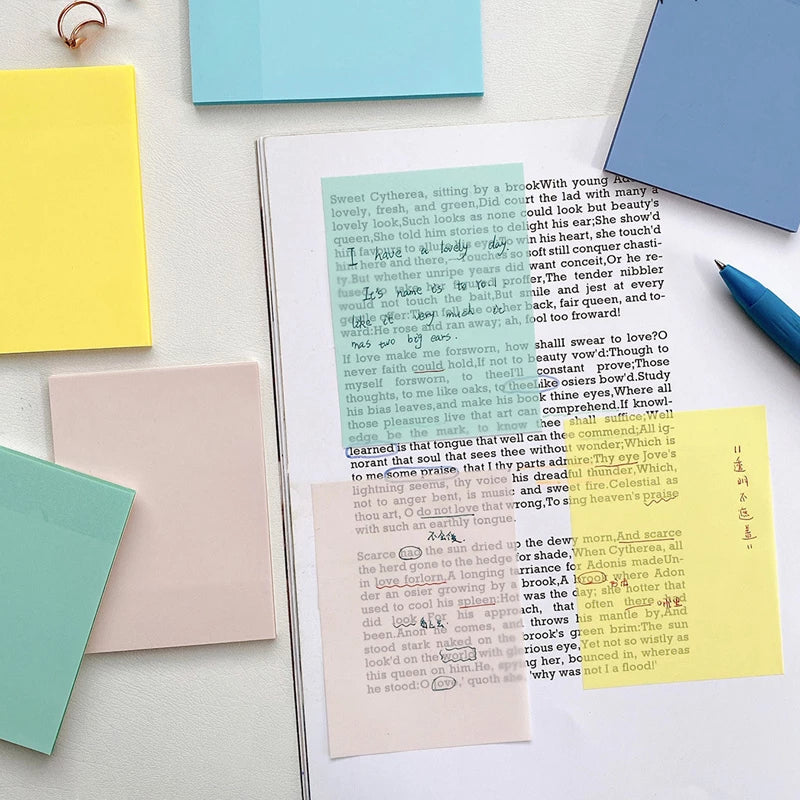 Sweet Cytherea, sitting by a brookWith young
lovely, fresh, and green,Did court the lad with many a
lovely look,Such looks as none could look but beauty's
queen,She told him stories to delight his ear;She show'd
him favours to allure his eye;To win his heart, she touch'd
him here and there, touches so soft still conquer chasti-
ty.But whether unripe years did want conceit,Or he re-
fused to take her figured proffer,The tender nibbler
would not touch the bait,But smile and jest at every
gentle offer:Then fell she on her back, fair queen, and to-
ward:He rose and ran away; ah, fool too froward!
I have a lovely day.
It's name is to ro.l
like it very much it
has two big ears.
If love make me forsworn, how shalll swear to love?O
never faith could hold,If not to beauty vow'd:Though to
myself forsworn, to thee'll constant prove;Those
thoughts, to me like oaks, to theeLike osiers bow'd.Study
his bias leaves,and make his book thine eyes,Where all
those pleasures live that art can comprehend.If knowl-
edge be the mark, to know thee shall suffice;Well
learned is that tongue that well can thee commend;All ig-
norant that soul that sees thee without wonder;Which is
to me some praise, that I thy parts admire:Thy eye Jove's
lightning seems, thy voice his dreadful thunder,Which,
not to anger bent, is music and sweet fire.Celestial as
thou art, O do not love that wrong,To sing heaven's praise
with such an earthly tongue.
Scarce had the sun dried up the dewy morn,And scarce
the herd gone to the hedge for shade,When Cytherea, all
in love forlorn,A longing tarriance for Adonis madeUn-
der an osier growing by a brook,A brook where Adon
used to cool his spleen:Hot was the day; she hotter that
did look For his approach, that often there had
been.Anon he comes, and throws his mantle by,And
stood stark naked on the brook's green brim:The sun
look'd on the world with glorious eye,Yet not so wistly as
this queen on him.He, spying her, bounced in, whereas
he stood:O Jove,' quoth she, 'why was not I a flood!'
"透明不遮盖"
哪里